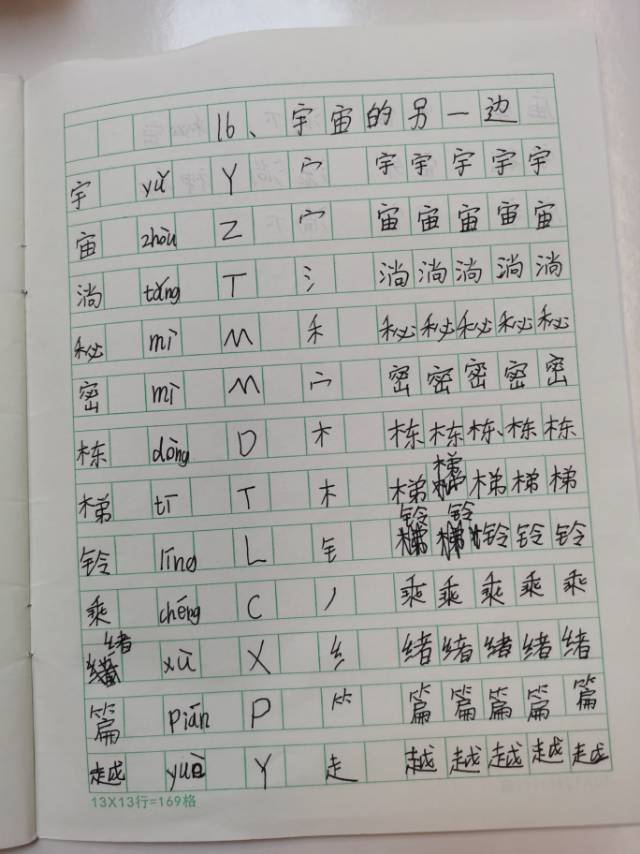 16、宇宙的另一边
宇 yǔ Y 宀 宇宇宇宇宇
宙 zhòu Z 宀 宙宙宙宙宙
淌 tǎng T 氵 淌淌淌淌淌
秘 mì M 禾 秘秘秘秘秘
密 mì M 宀 密密密密密
栋 dòng D 木 栋栋栋栋栋
梯 tī T 木 梯梯梯梯梯
铃 líng L 钅 铃铃铃铃铃
乘 chéng C 丿 乘乘乘乘乘
绪 xù X 纟 绪绪绪绪绪
篇 piān P ⺮ 篇篇篇篇篇
越 yuè Y 走 越越越越越
13X13行=169格